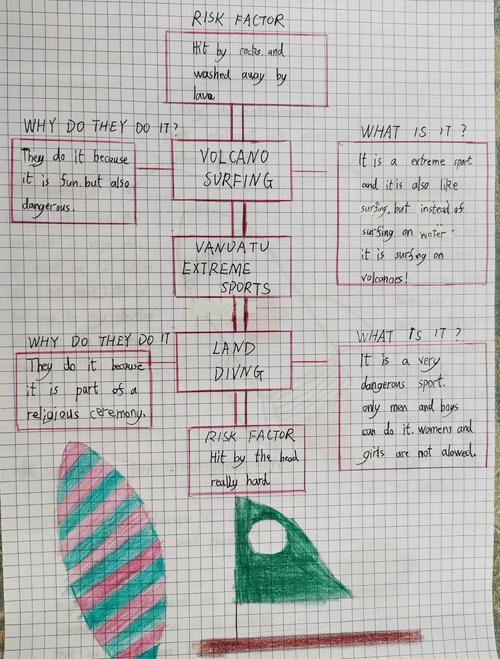 RISK FACTOR
Hit by rocks. and
washed away by
lava.
WHY DO THEY DO IT?
They do it because
it is fun. but also
dangerous.
VOLCANO
SURFING
WHAT IS IT?
It is a extreme sport
and it is also like
surfing. but instead of
surfing on water
it is surfing on
volcanoes!
VANUATU
EXTREME
SPORTS
WHY DO THEY DO IT
They do it because
it is part of a
religious ceremony.
LAND
DIVNG
WHAT IS IT?
It is a very
dangerous sport.
only men and boys
can do it. womens and
girls are not alowed.
RISK FACTOR
Hit by the head
really hard